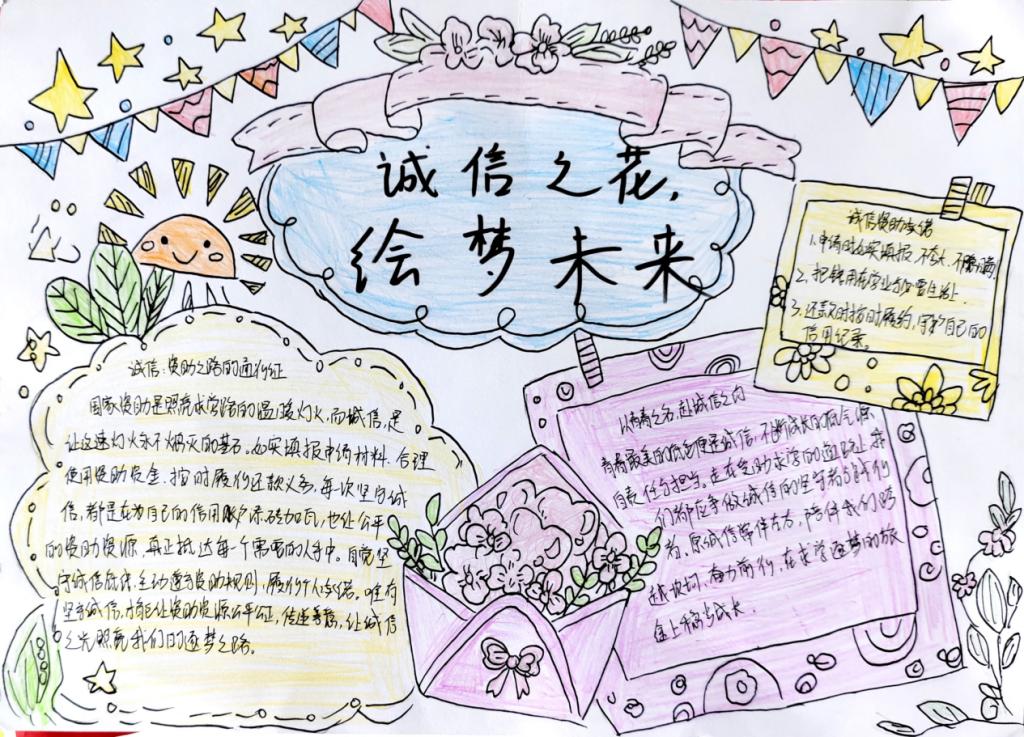 诚信之花,
绘梦未来
诚信资助承诺
1.申请时如实填报,不夸大、不隐瞒
2、把钱用在学业与必要生活上.
3、还款时按时履约,守护自己的
信用记录。
诚信:资助之路的通行证
国家资助是照亮求学路的温暖灯火,而诚信,是
让这速灯火永不熄灭的基石。如实填报申请材料、合理
使用资助资金、按时履行还款义务,每次坚守诚
信,都是在为自己的信用账户添砖加瓦,也让公平
的资助资源真正抵达每一个需要的人手中。自觉坚
守诚信底线,主动遵守资助规则,履行个人承诺。唯有
坚守诚信,才能让资助资源公平公正,传递善意,让诚信
之光照亮我们的逐梦之路。
以青春之名,赴诚信之约
青春最美的底色便是诚信,不断成长的底气源
自责任与担当。走在受助求学的道路上,我
们都应争做诚信的坚守者与践行
者。愿诚信常伴左右,陪伴我们跨
越坎坷,奋力前行,在求学逐梦的旅
途上稳步成长.